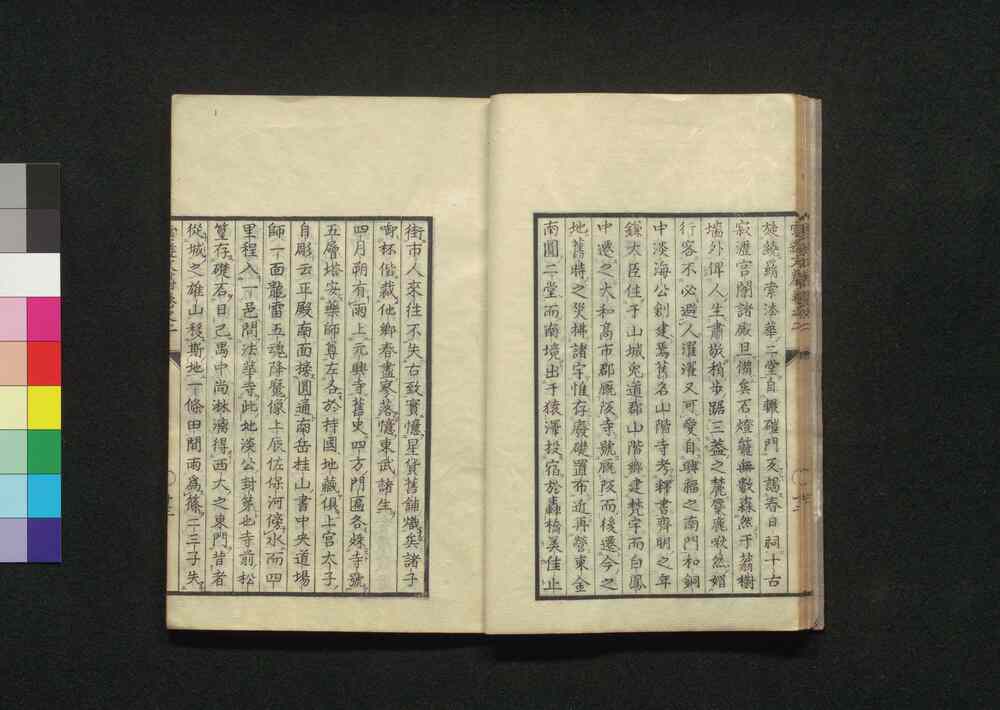 旋繞羂索法華二堂自轆磑門亥謁春日祠十古
寂瀝宮闕諸厰旦備矣石燈籠無數森然于蓊樹
墻外俾人生肅敬稍步踞三蓋之麓麋鹿呦然媚
行客不必避人濯濯又可愛自興福之南門和銅
中淡海公創建焉舊名山階寺考釋書齊明之年
鎌太臣住于山城兔道郡山階鄉建梵宇而白鳳
中遷之大和高市郡厩阪寺號厩阪而後遷今之
地舊時之災構諸宇惟存廢礎置布近再營東金
南圓二堂而南境出于猿澤投宿於轟橋美佳止
街市人來往不失古致實憶星貨舊鋪熾矣諸子
啣杯償裁他鄉春盡寥落憶東武諸生
四月朔有雨上元興寺舊史四方門區各殊寺號
五層塔安藥師尊左右於持國地藏俱上宮太子
自彫云正殿南面接圓通南岳桂山書中央道場
師一面龍雷五魂降魔像上辰佐保河傍水而四
里程入一邑問法華寺此地淡公封第也寺前松
篁存礎石日己禺中尚淋漓得西大之東門昔者
從城之雄山移斯地一條田間雨爲篠二三子失